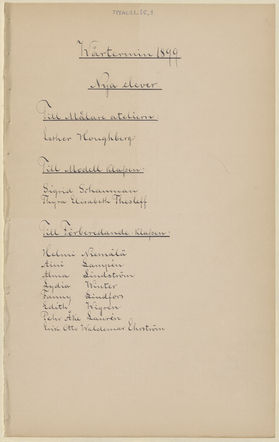 Vårtermin 1899
Nya elever
Till Målare ateliern:
Esther Houghberg
Till Modell klassen:
Sigrid Schauman
Thyra Elisabeth Thesleff
Till Förberedande klassen:
Helmi Niemälä
Aini Lampén
Alma Lindström
Lydia Winter
Fanny Lindfors
Edith Wigren
Pehr Åke Laurén
Erik Otto Woldemar Ehrström